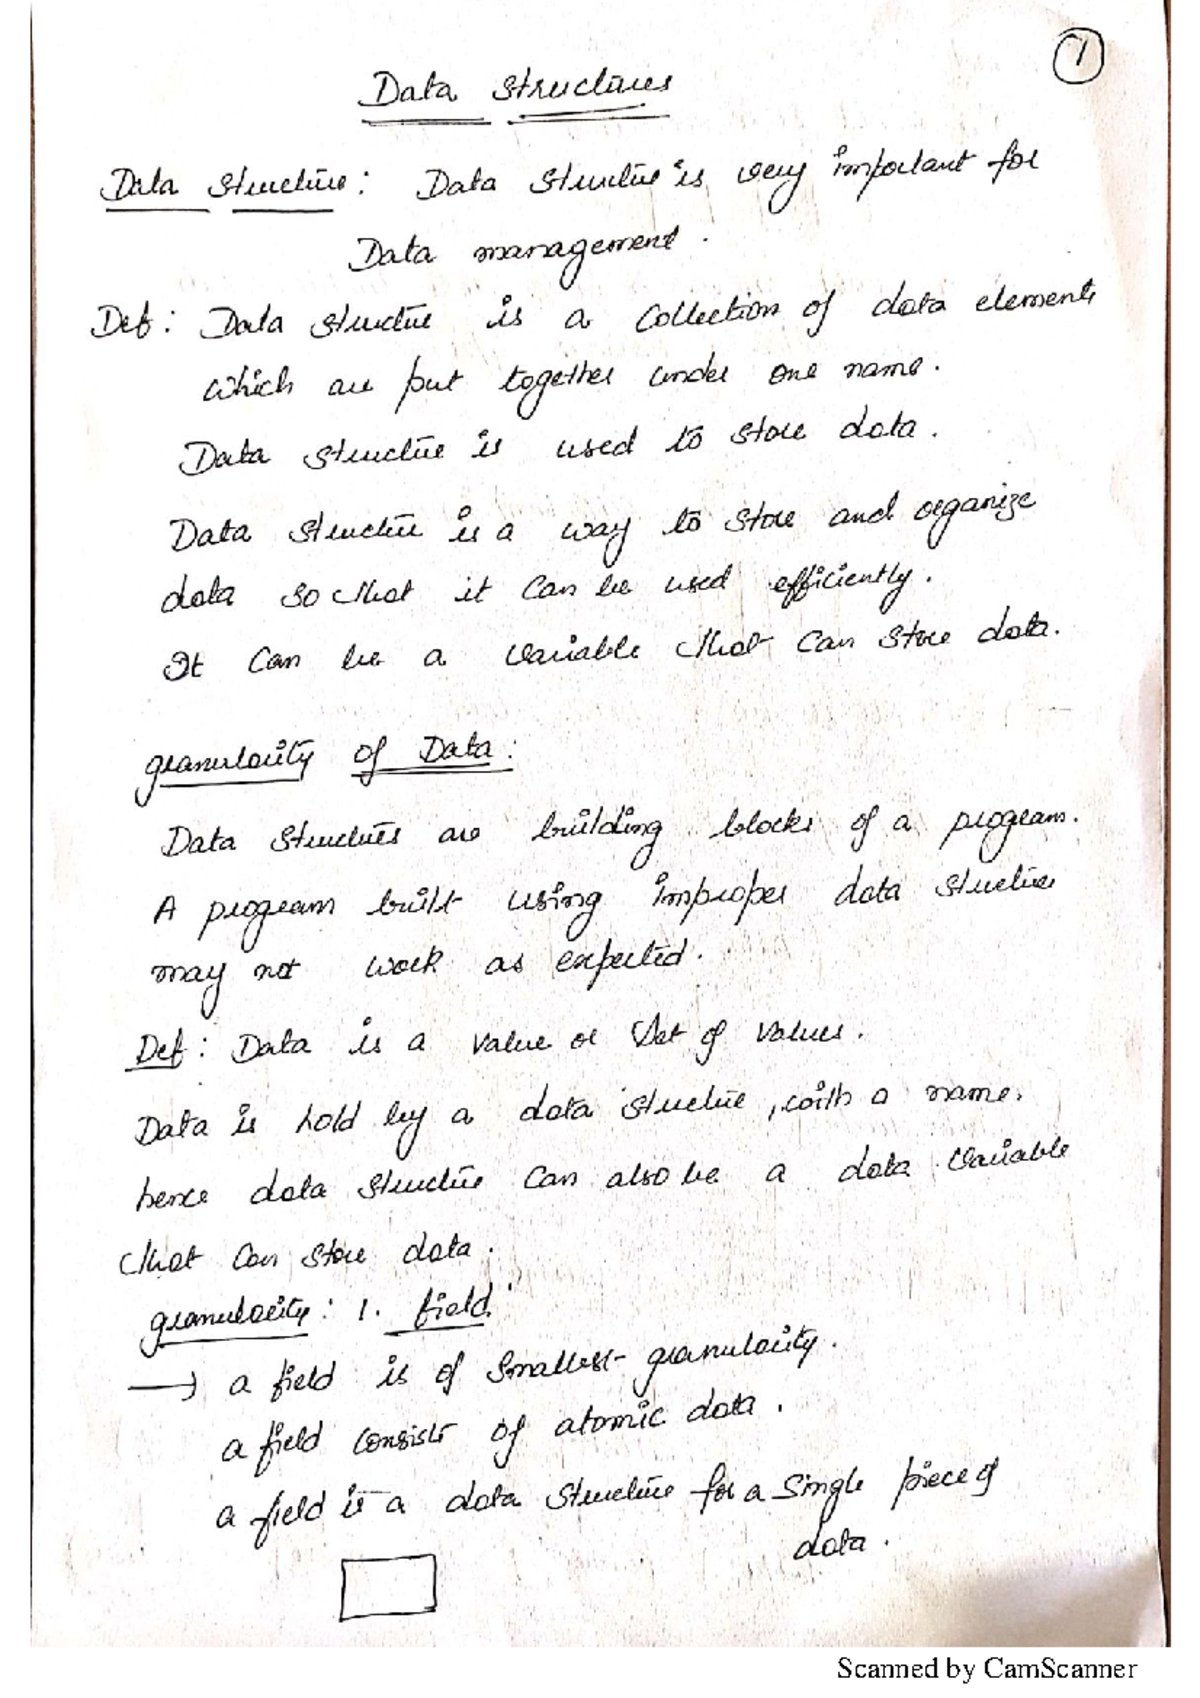 1
Data Structures
Data Structure: Data Structure is very important for
Data management.
Def: Data Structure is a Collection of data elements
which are put together under one name.
Data Structure is used to store data.
Data Structure is a way to store and organize
data so that it can be used efficiently.
It can be a variable that can store data.
granularity of Data:
Data Structures are building blocks of a program.
A program built using improper data structures
may not work as expected.
Def: Data is a value or set of values.
Data is hold by a data structure, with a name,
hence data structure can also be a data variable
that can store data.
granularity: 1. field
→ a field is of smallest granularity.
a field consists of atomic data.
a field is a data structure for a single piece of
data.
Scanned by CamScanner